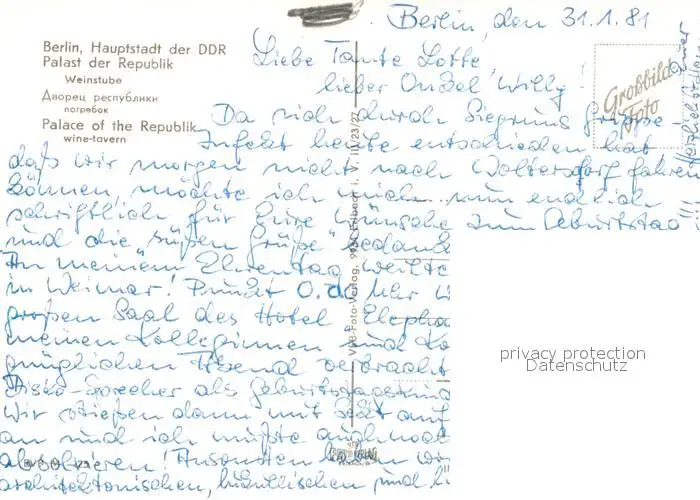 Berlin, den 31.1.81
Berlin, Hauptstadt der DDR
Palast der Republik
Weinstube
Дворец республики
погребок
Palace of the Republik
wine-tavern
Großbild
Foto
Liebe Tante Lotte
lieber Onkel Willy!
Da sich durch Siegruns Grippe
Infekt heute entschieden hat
daß wir morgen nicht nach Woltersdorf fahren
können, möchte ich mich nun endlich
schriftlich für Eure Wünsche zum Geburtstag
und die "süßen Grüße" bedank
An meinem Ehrentag weilte
in Weimar! Punkt 0.00 Uhr
großen Saal des Hotel "Elepha
meinen Kolleginnen und Ko
Abend verbracht
Disko-Sprecher als
Wir stießen dann mit Sekt auf
an und ich mußte auch noch
absolvieren! Ansonsten
architektonischen, und
VEB Foto-Verlag, Erlbach i. V.
Herzlich
privacy protection
Datenschutz